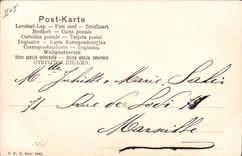 Post-Karte
Levelező-Lap — Post card — Briefkaart
Brefkort — Carte postale
Cartolina postale — Tarjeta postal
Dopisnice — Karta Korespondencyjna
Correspondenzkarte — Dopisnica
Weltpostverein
Union postale universelle — Unione postale universale
ОТКРЫТОЕ ПИСЬМО.
Mlle Juliette, Marie Salis
71 Rue de Lodi 71
Marseille